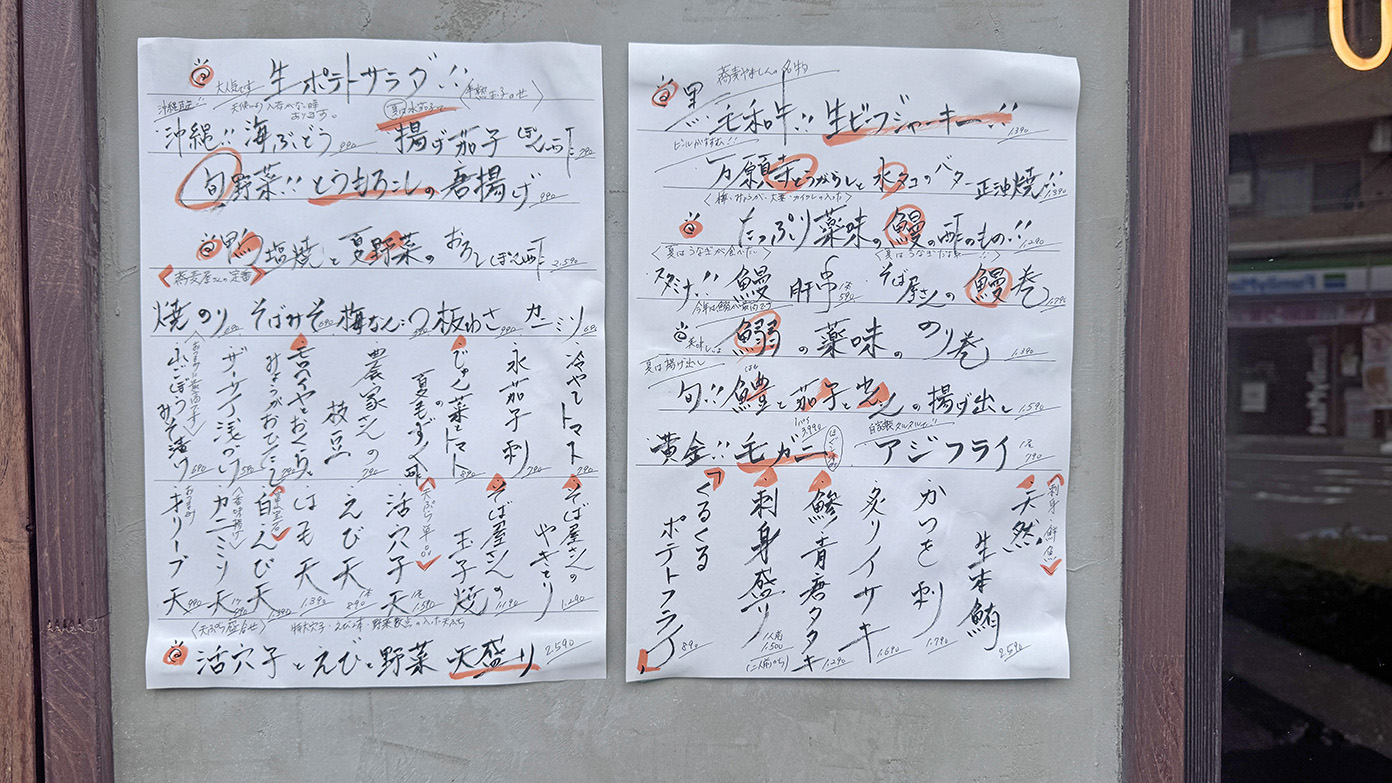 大人気です
生ポテトサラダ!!
沖縄直送!!
沖縄!!海ぶどう 990
夏は水茄子で
揚げ茄子ぽん酢 790
旬野菜!!とうもろこしの唐揚げ 990
塩焼と夏野菜のおろしぽん酢 2.590
〈蕎麦屋さんの定番〉
焼のり 690
そばみそ 590
梅なんこつ 590
板わさ 990
カニミソ 690
冷やしトマト 790
水茄子刺 790
じゅん菜とトマトの 890
夏毛ずく酢
農家さんの枝豆
モロヘイヤとおくら、
みょうがおひたし
ザーサイ浅つけ 590
小ごぼうみそ漬け 590
そば屋さんのやきとり 1.290
そば屋さんの玉子焼 1.190
〈天ぷら単品〉
活穴子天 1本 1.590
えび天 1本 890
はも天 1.390
白えび天 1.390
カニミソ天
オリーブ天 990
〈天ぷら盛合せ〉
特大穴子・えび2本・野菜数点の入った天ぷら
活穴子とえびと野菜天盛り 2.590
蕎麦やましんの名物
黒毛和牛!!生ビーフジャーキー!! 1.390
ビールがすすむ!!
万願寺とうがらしと水タコのバター正油焼!! 1.390
〈梅・みょうが・大葉・カイワレの入った〉
たっぷり薬味の鰻の酢のもの!! 1.290
〈夏はうなぎが食べたい〉
スタミナ!!鰻肝串 1本 590
そば屋さんの鰻巻 1.790
今年は鰯が最高です
美味しい鰯の薬味ののり巻 1.390
夏は揚げ出し
はも
旬!!鱧と茄子と
の揚げ出し 1.590
黄金!!毛ガニ 1パイ 3.990
自家製タルタルで!!
アジフライ 1尾 790
〈刺身・鮮魚〉
天然生本鮪 2.590
かつを刺 1.790
炙りイサキ 1.690
鯵青唐タタキ 1.290
刺身盛り 1人前 1.500
(二人前から)
くるくるポテトフライ 890